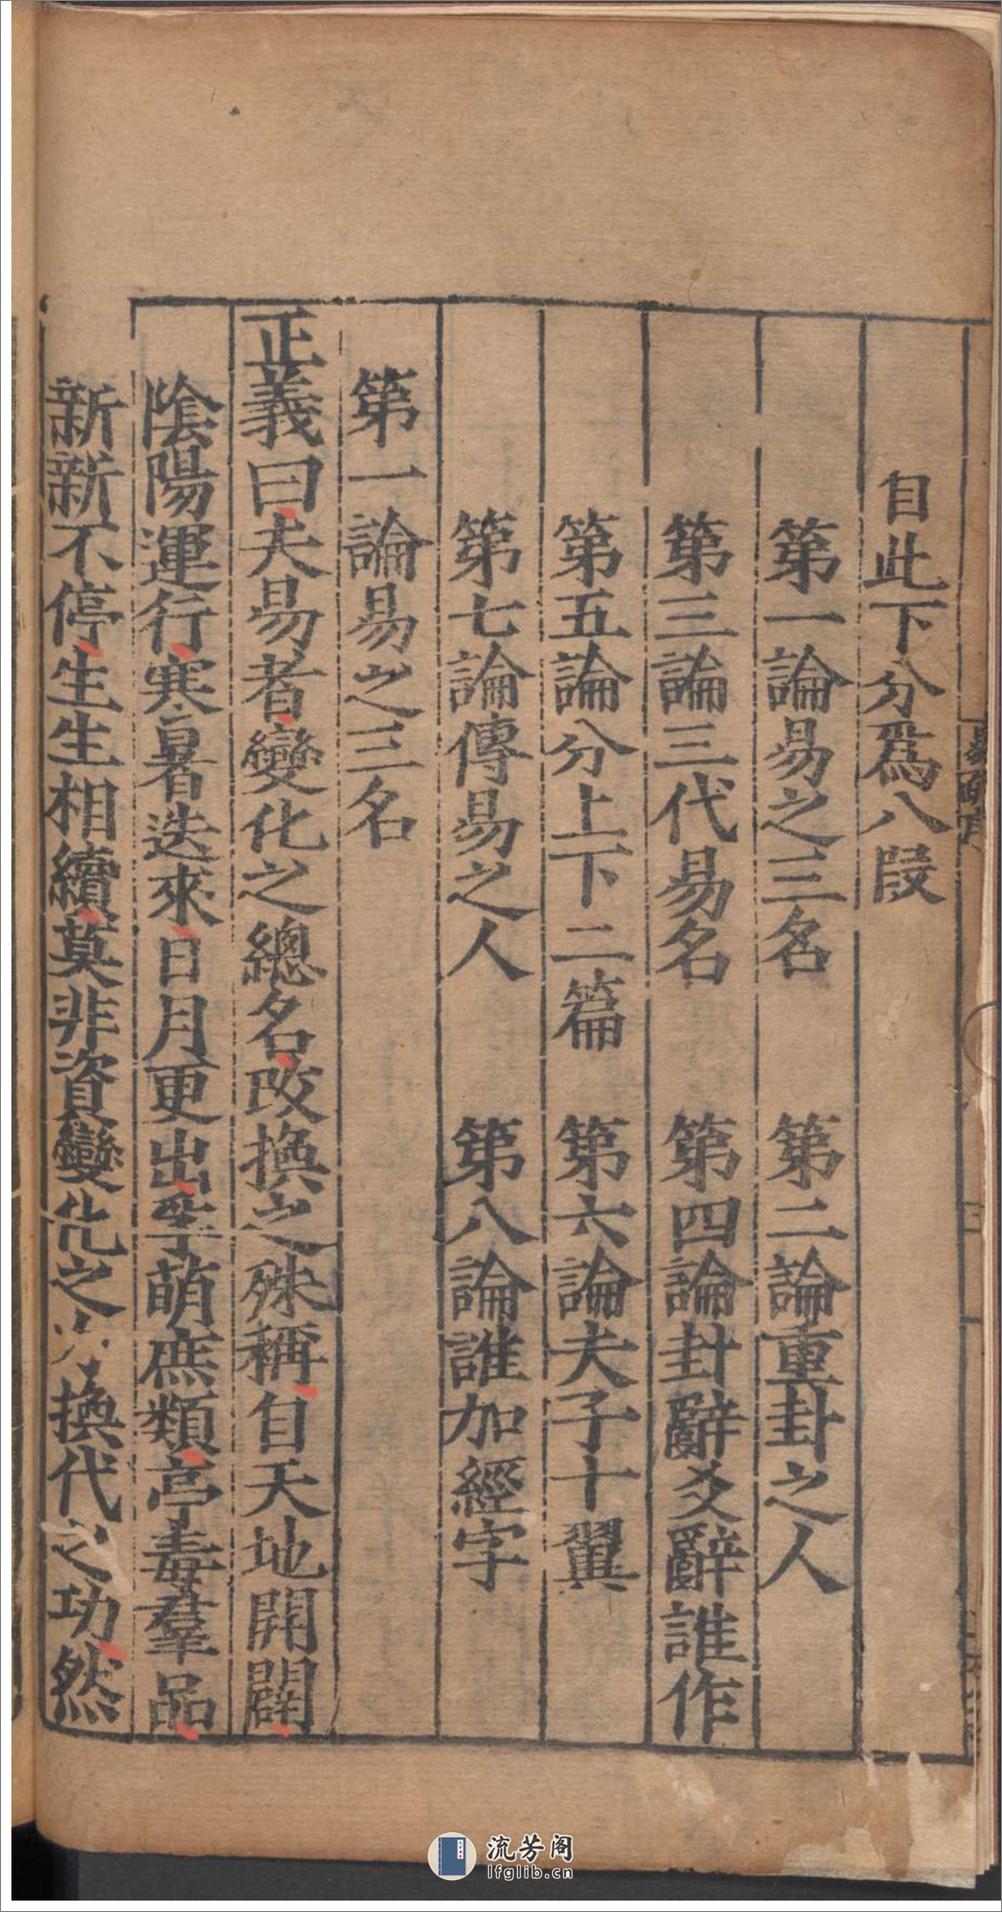 自此下分爲八段
第一論易之三名 第二論重卦之人
第三論三代易名 第四論卦辭爻辭誰作
第五論分上下二篇 第六論夫子十翼
第七論傳易之人 第八論誰加經字
第一論易之三名
正義曰夫易者變化之總名改換之殊稱自天地開闢
陰陽運行寒暑迭來日月更出孚萌庶類亭毒羣品
新新不停生生相續莫非資變化之 換代之功然
流芳阁
lfglib.cn